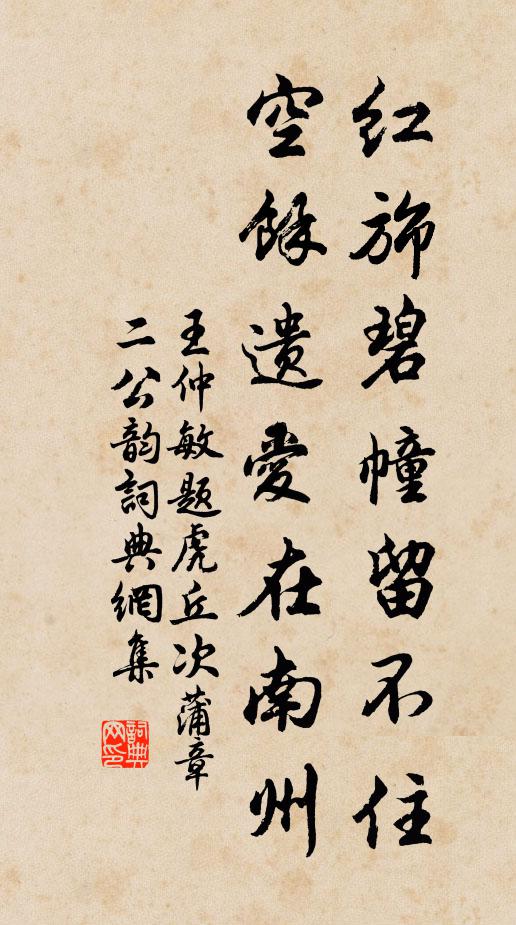 红旆碧幢留不住
空餘遺愛在南州
王仲敏题虎丘次蒲章
二公韵詞典網集
詞典网印